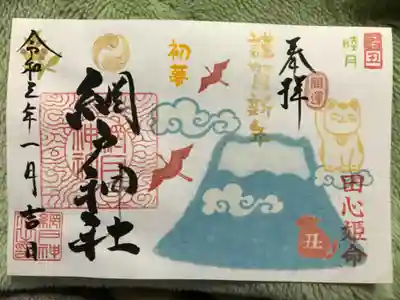 睦月
奉拝
開運
田心姫命
丑
謹賀新年
初夢
網戸神社
令和三年一月吉日